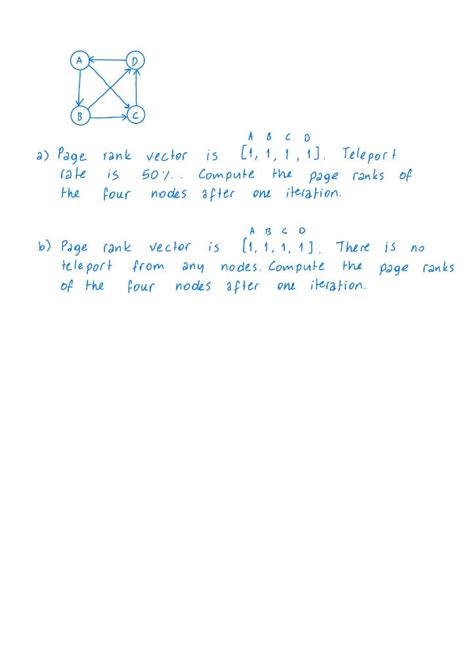 A D
B C
A B C D
a) Page rank vector is [1, 1, 1, 1]. Teleport
rate is 50%. Compute the page ranks of
the four nodes after one iteration.
A B C D
b) Page rank vector is [1, 1, 1, 1]. There is no
teleport from any nodes. Compute the page ranks
of the four nodes after one iteration.